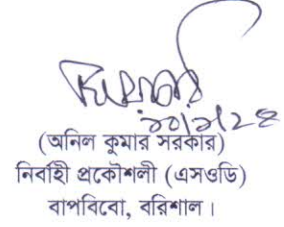 ২০/১/২৪
(অনিল কুমার সরকার)
নির্বাহী প্রকৌশলী (এসওডি)
বাপবিবো, বরিশাল।